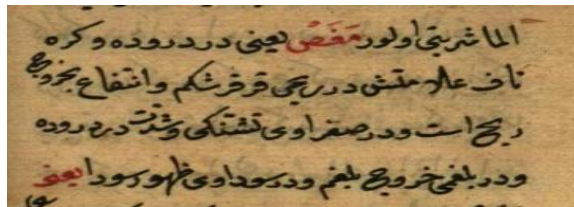 الما شربتی اولور مَغَصْ یعنی درد روده و کره
ناف علامتش در ریحی قرقر شکم و انتفاع بخروج
ریح است و در صفراوی تشنکی و شدت درد روده
و در بلغمی خروج بلغم و در سوداوی ظهور سودا یعنی